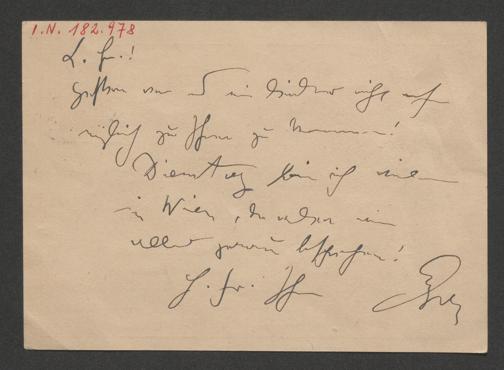 I.N. 182.978
L. Fr.!
Gestern war es mir leider nicht
möglich zu Ihnen zu kommen!
Dienstag bin ich
in Wien, da werden wir
alles genau besprechen!
H. Gr. Ihr